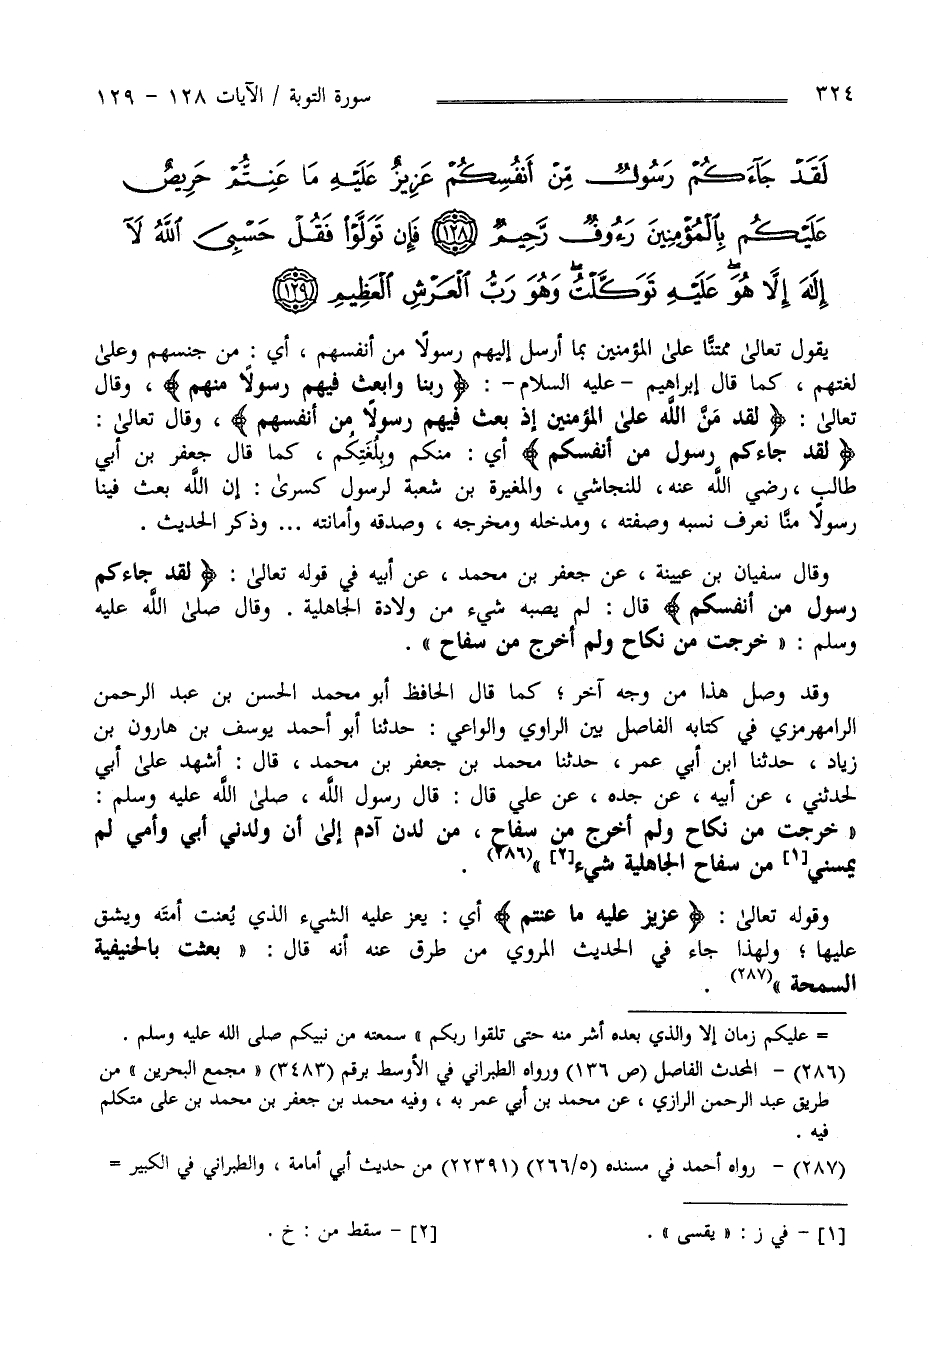 ٣٢٤ سورة التوبة / الآيات ١٢٨ - ١٢٩
لَقَدْ جَآءَكُمْ رَسُولٌ مِّنْ أَنفُسِكُمْ عَزِيزٌ عَلَيْهِ مَا عَنِتُّمْ حَرِيصٌ
عَلَيْكُم بِٱلْمُؤْمِنِينَ رَءُوفٌ رَّحِيمٌ ﴿١٢٨﴾ فَإِن تَوَلَّوْا۟ فَقُلْ حَسْبِىَ ٱللَّهُ لَآ
إِلَٰهَ إِلَّا هُوَ ۖ عَلَيْهِ تَوَكَّلْتُ ۖ وَهُوَ رَبُّ ٱلْعَرْشِ ٱلْعَظِيمِ ﴿١٢٩﴾
يقول تعالىٰ ممتنًّا علىٰ المؤمنين بما أرسل إليهم رسولًا من أنفسهم ، أي : من جنسهم وعلىٰ
لغتهم ، كما قال إبراهيم -عليه السلام- : ﴿ ربنا وابعث فيهم رسولًا منهم ﴾ ، وقال
تعالىٰ : ﴿ لقد مَنَّ اللَّه علىٰ المؤمنين إذ بعث فيهم رسولًا من أنفسهم ﴾ ، وقال تعالىٰ :
﴿ لقد جاءكم رسول من أنفسكم ﴾ أي : منكم وبِلُغَتِكُم ، كما قال جعفر بن أبي
طالب ، رضي اللَّه عنه ، للنجاشي ، والمغيرة بن شعبة لرسول كسرىٰ : إن اللَّه بعث فينا
رسولًا منَّا نعرف نسبه وصفته ، ومدخله ومخرجه ، وصدقه وأمانته ... وذكر الحديث .
وقال سفيان بن عيينة ، عن جعفر بن محمد ، عن أبيه في قوله تعالىٰ : ﴿ لقد جاءكم
رسول من أنفسكم ﴾ قال : لم يصبه شيء من ولادة الجاهلية . وقال صلىٰ اللَّه عليه
وسلم : « خرجت من نكاح ولم أخرج من سفاح » .
وقد وصل هذا من وجه آخر ؛ كما قال الحافظ أبو محمد الحسن بن عبد الرحمن
الرامهرمزي في كتابه الفاصل بين الراوي والواعي : حدثنا أبو أحمد يوسف بن هارون بن
زياد ، حدثنا ابن أبي عمر ، حدثنا محمد بن جعفر بن محمد ، قال : أشهد علىٰ أبي
لحدثني ، عن أبيه ، عن جده ، عن علي قال : قال رسول اللَّه ، صلىٰ اللَّه عليه وسلم :
« خرجت من نكاح ولم أخرج من سفاح ، من لدن آدم إلىٰ أن ولدني أبي وأمي لم
يمسني[١] من سفاح الجاهلية شيء[٢] »(٢٨٦) .
وقوله تعالىٰ : ﴿ عزيز عليه ما عنتم ﴾ أي : يعز عليه الشيء الذي يُعنت أمتَه ويشق
عليها ؛ ولهذا جاء في الحديث المروي من طرق عنه أنه قال : « بعثت بالحنيفية
السمحة »(٢٨٧) .
= عليكم زمان إلا والذي بعده أشر منه حتى تلقوا ربكم » سمعته من نبيكم صلى الله عليه وسلم .
(٢٨٦) - المحدث الفاصل (ص ١٣٦) ورواه الطبراني في الأوسط برقم (٣٤٨٣) « مجمع البحرين » من
طريق عبد الرحمن الرازي ، عن محمد بن أبي عمر به ، وفيه محمد بن جعفر بن محمد بن على متكلم
فيه .
(٢٨٧) - رواه أحمد في مسنده (٢٦٦/٥) (٢٢٣٩١) من حديث أبي أمامة ، والطبراني في الكبير =
[١] - في ز : « يقسى » . [٢] - سقط من : خ .